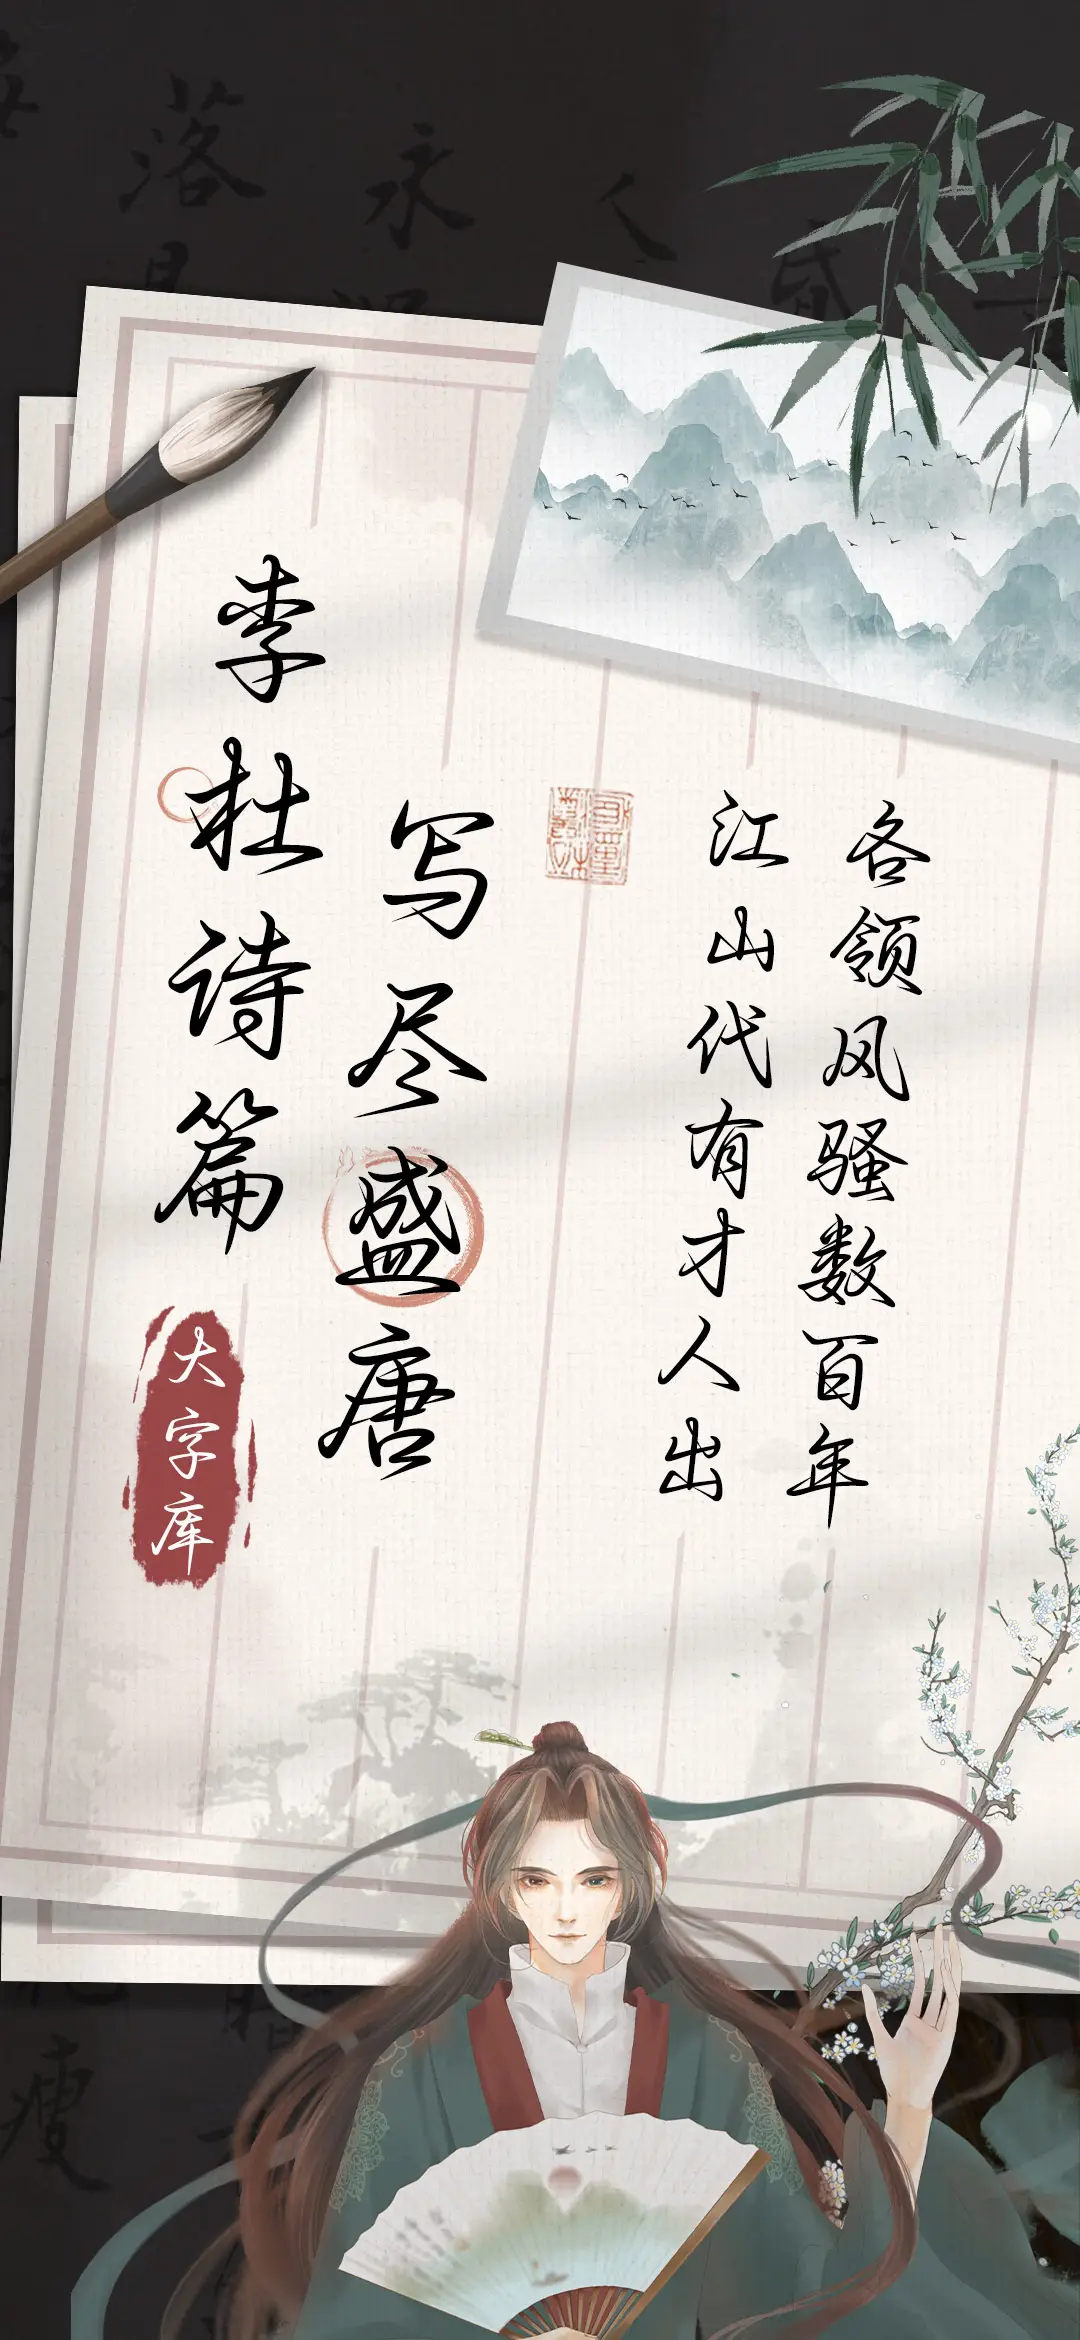 李杜诗篇
写尽盛唐
大字库
江山代有才人出
各领风骚数百年
落
永
瘦